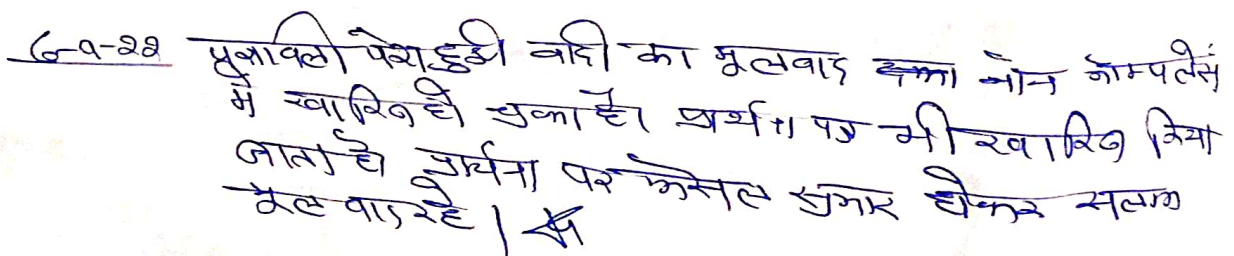 6-9-22 पत्रावली पेश हुई वादी का मूलवाद नोन कोम्पलेंस
में खारिज हो चुका है। प्रार्थना पत्र भी खारिज किया
जाता है प्रार्थना पत्र फैसल शुमार होकर सलंग्न
मूल वाद रहे।